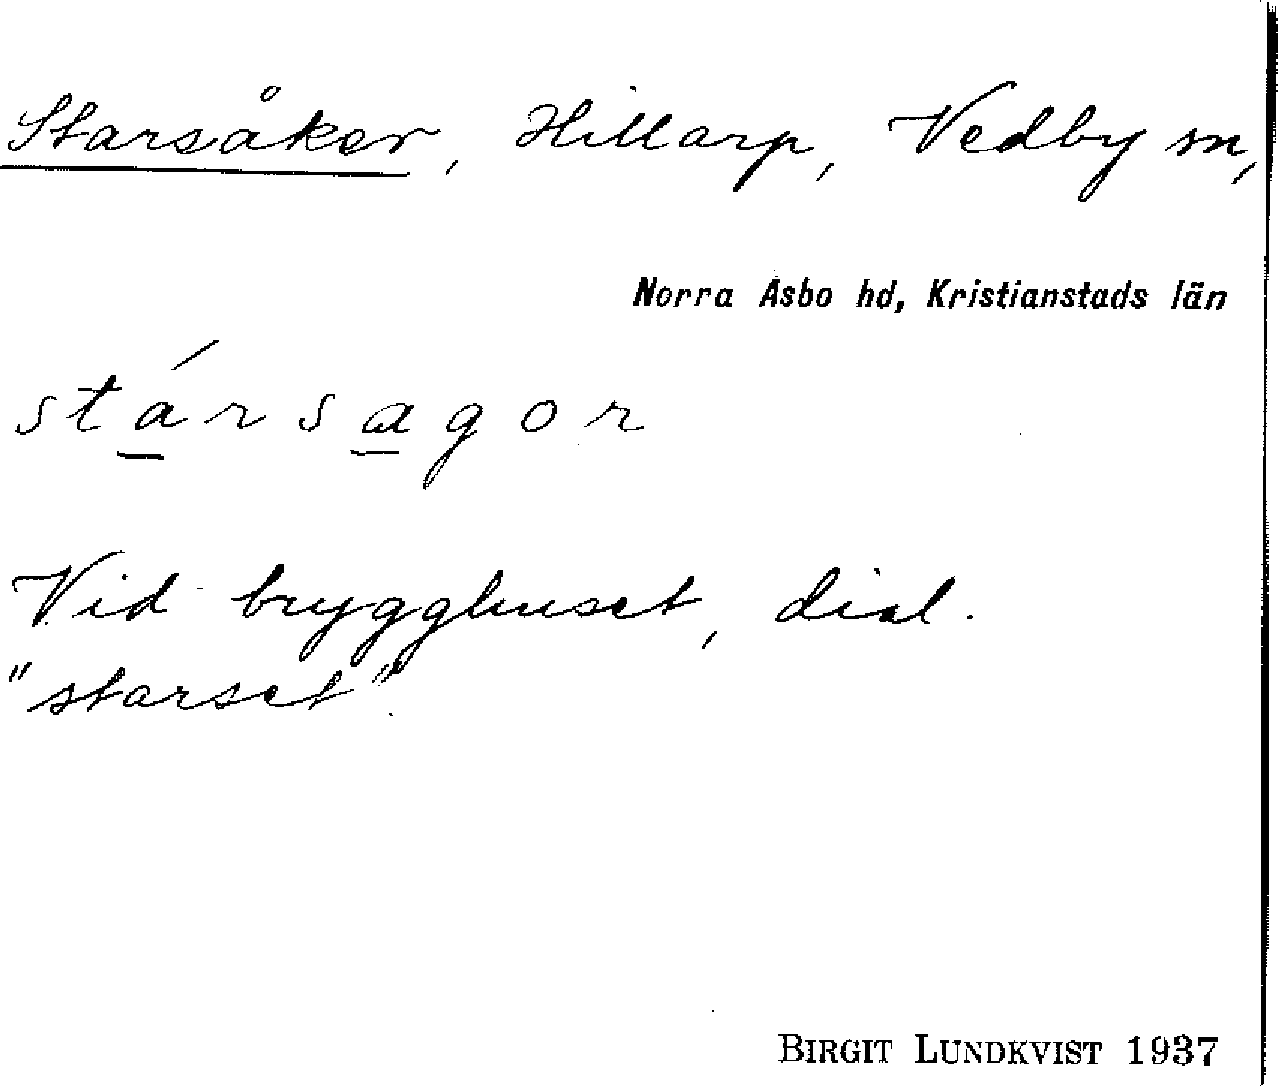 Starsåker, Hillarp, Vedby sn,
Norra Åsbo hd, Kristianstads län
stársagor
Vid brygghuset, dial.
"starset".
BIRGIT LUNDKVIST 1937